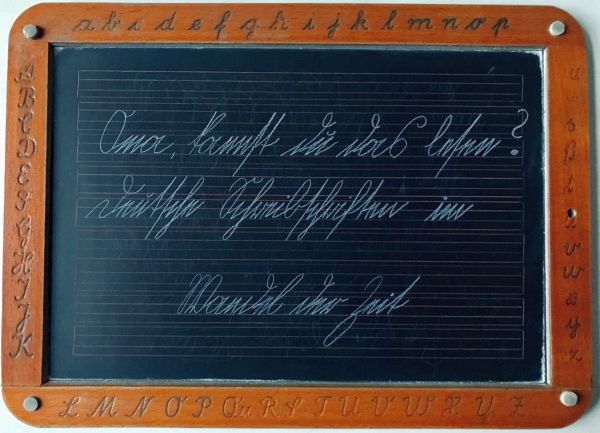 a b c d e f g h i j k l m n o p
Oma, kannst du das lesen?
deutsche Schreibschriften im
Wandel der Zeit
A
B
C
D
E
F
G
H
I
J
K
s
ß
t
u
v
w
x
y
z
L M N O P Qu R S T U V W X Y Z